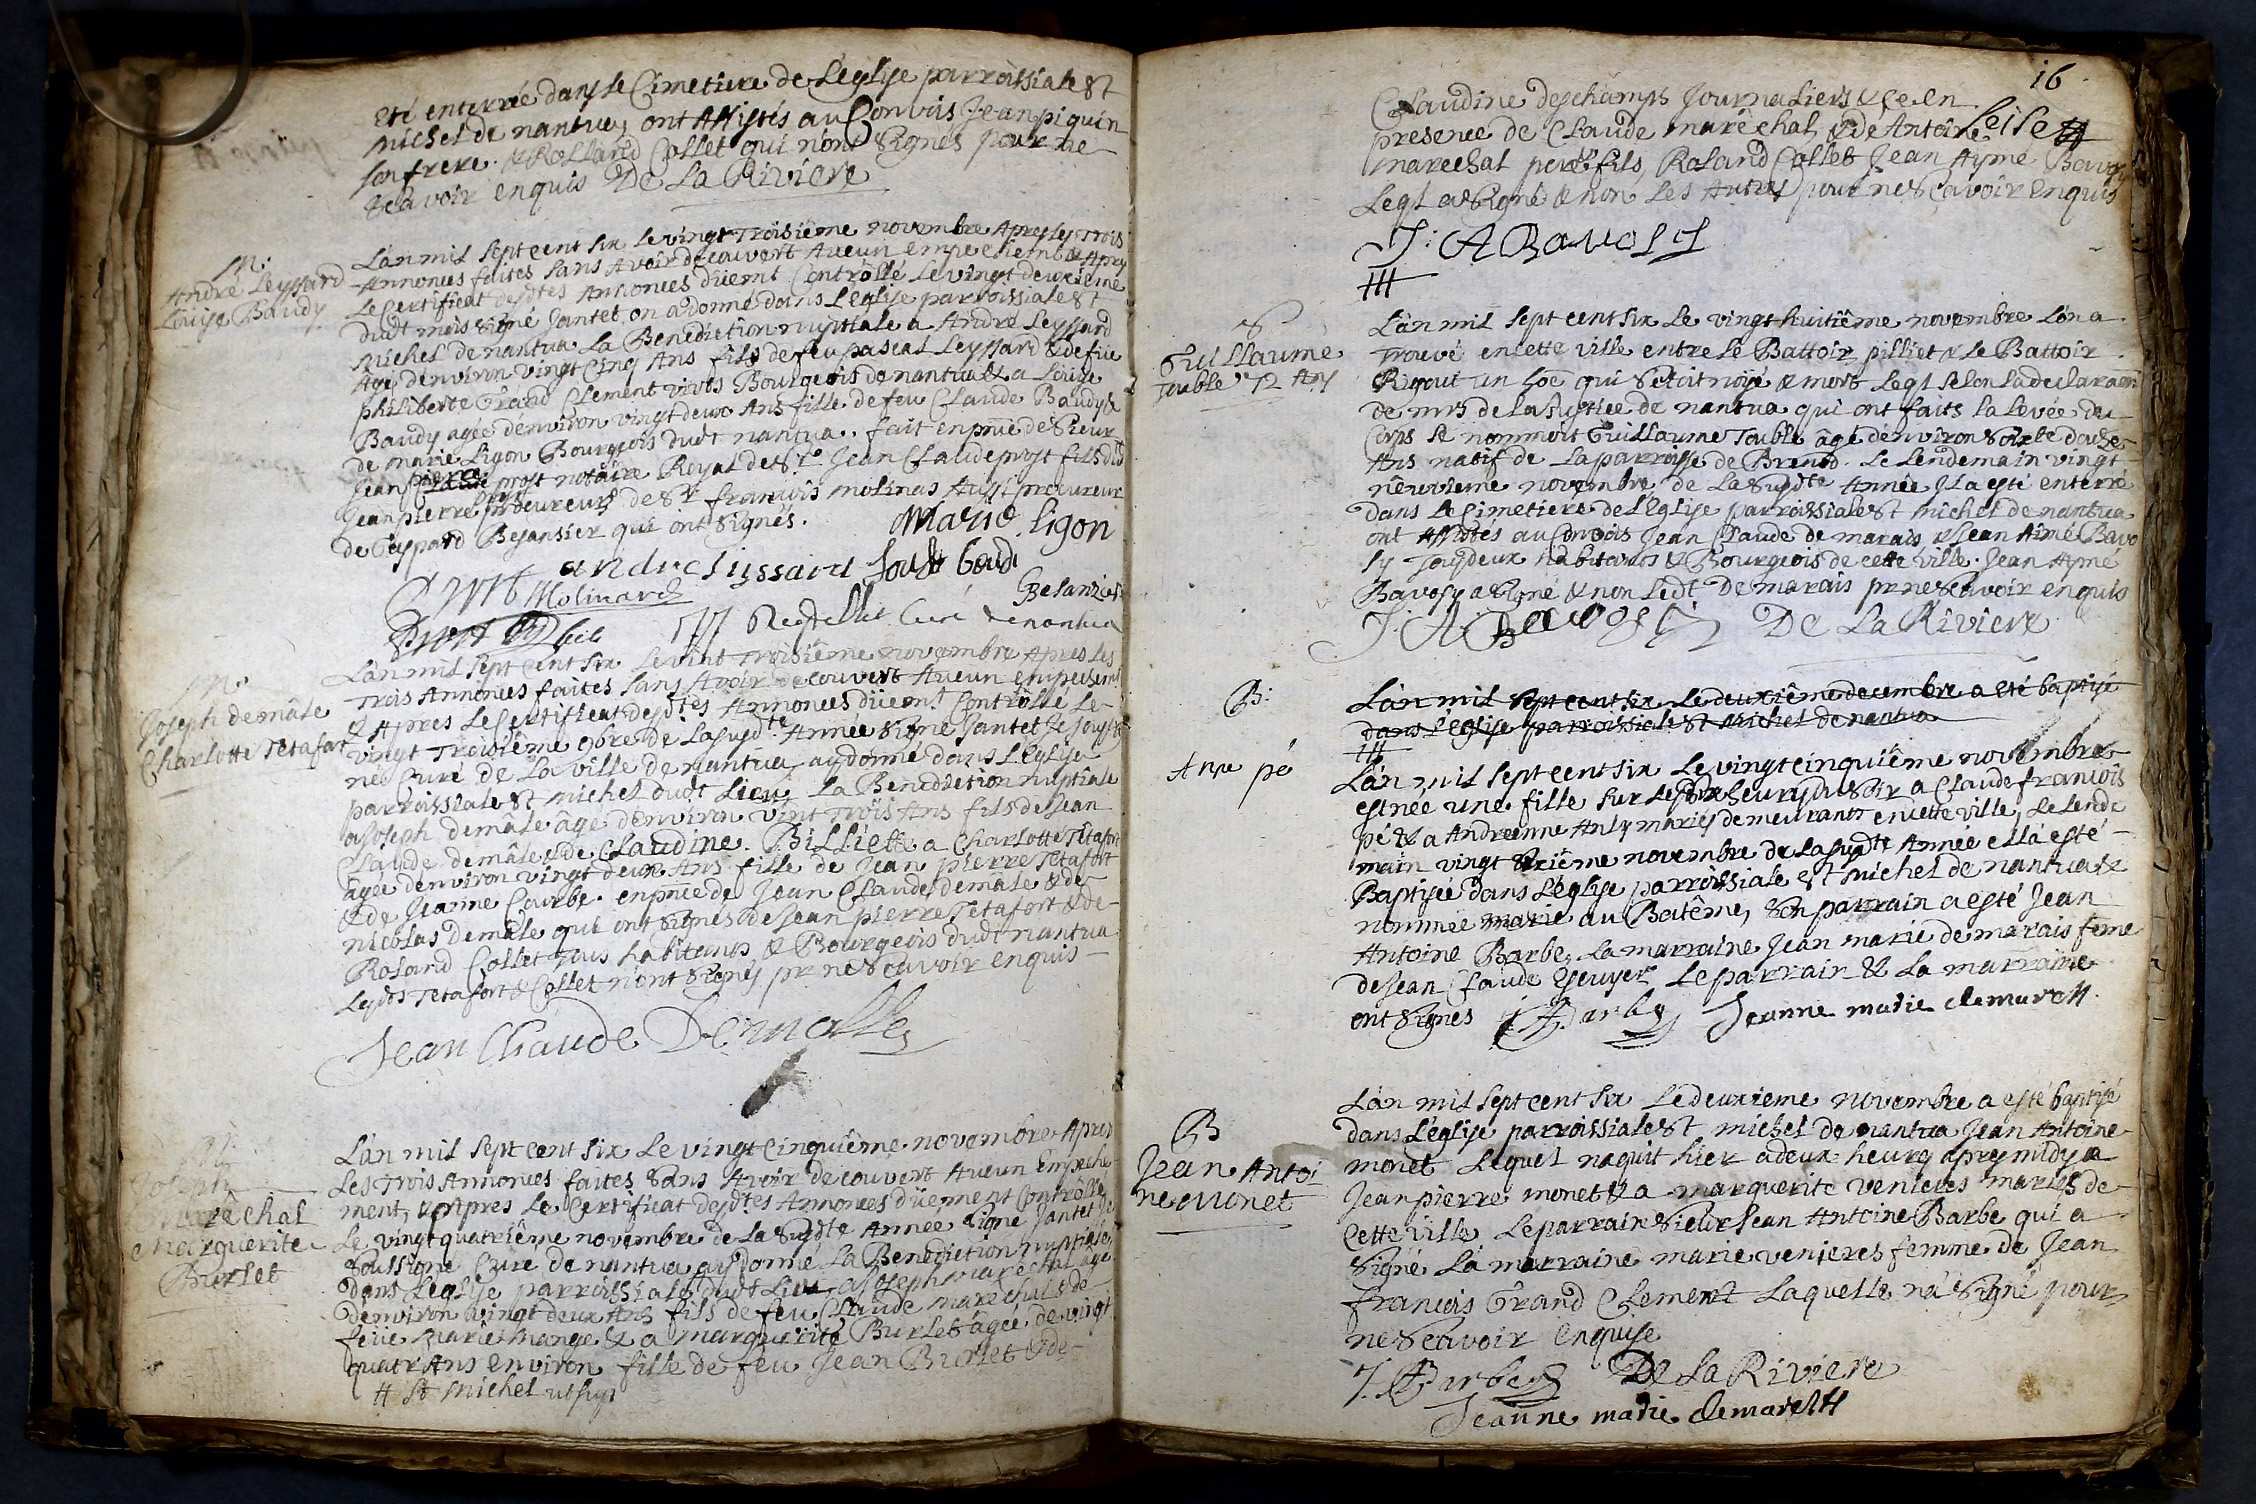 eté enterrée dans le Cimetiere de L'eglise parroissiale St
michel de nantua, ont Assistés au Convois Jean piquin
son frere. & Rolland Collet qui n'ont Signés pour ne
scavoir enquis De La Riviere
M:
André Leyssard
Louise Baudy
L'an mil sept cent six le vingt Troisiême novembre Apres les Trois
Annonces faites sans Avoir decouvert Aucun empechemt & Apres
Le Certificat desdtes Annonces düemt Contrôllé le vingt deuxiême
dudt mois signé Jantet on a donné dans L'eglise parroissiale St
Michel de nantua La Benediction nuptiale a André Leyssard
Agé d'environ vingt Cinq Ans fils de feu pascal Leyssard & de feüe
philiberte Grand Clement vivts Bourgeois de nantua & a Loüise
Baudy agée d'environ vingt deux Ans fille de feu Claude Baudy &
de marie Ligon Bourgeois dudt nantua. fait en pnce de Sieur
Jean Claude prost notaire Royal de Sr Jean Claude prost fils dud
Jean pierre procureurs de Sr françois molinas Aussi procureur
de Gaspard Besansier qui ont signés.
Marie ligon
andre lijssard
Molinard
Besanzier
Curé de nantua
M:
Joseph demâle
Charlotte Tetafort
L'an mil sept cent six Le vint Troisiême novembre Apres les
Trois Annonces faites sans Avoir decouvert Aucun empechemt
& Apres Le Certificat desdtes Annonces düemt Contrôllé Le
vingt Troisiême 9bre de La susdte Année Signé Jantet Je soussi
né Curé de La ville de nantua ay donné dans L'Eglise
parroissiale St michel dudt Lieu La Benediction nuptiale
a Joseph demâle âgé d'environ vint Trois Ans fils de Jean
Claude demâle & de Claudine Billiet & a Charlotte Tetafort
âgée d'environ vingt deux Ans fille de Jean pierre Tetafort
& de Jeanne Courbe. en pnce de Jean Claude demâle & de
nicolas demâle qui ont signés de Jean pierre Tetafort & de
Roland Collet tous habitants & Bourgeois dudt nantua
Lesdts Tetafort & Collet n'ont Signés pr ne Scavoir enquis
Jean Claude Demalle
Joseph
Marêchal
Marguerite
Burlet
L'an mil sept cent six Le vingt Cinquiême novembre Apres
Les Trois Annonces faites Sans Avoir decouvert Aucun Empeche
ment, & Apres Le Certificat desdtes Annonces düement Contrôllé
Le vingt quatriême novembre de La Susdte Année Signé Jantet Je
Soussigné Curé de nantua ay donné La Benediction nuptiale
dans L'eglise parroissiale dudt Lieu a Joseph marechal agé
d'environ vingt deux Ans fils de feu Claude marechal & de
feüe marie mange & a marguerite Burlet agée de vingt
quatr Ans environ fille de feu Jean Burlet & de
# St Michel
16
Claudine deschamps Journaliers & ce en
presence de Claude marêchal & de Antoine
marechal pere & fils, Roland Collet Jean Aymé Bavo
Leql a Signé & non Les Autres pour ne Scavoir enquis
J: A Bavosy
Guillaume
Touble 72 Ans
L'an mil sept cent six Le vingt huitiême novembre L'on a
Trouvé en cette ville entre Le Battoir pilliet & Le Battoir
Rigout un hoe qui S'etoit noyé & mort Leql selon la declaraon
de mrs de la Justice de nantua qui ont faits la Levée du
Corps Se nommoit Guillaume Touble âgé d'environ Soixte douze
Ans natif de La parroisse de Brenod. Le Lendemain vingt
neuvieme novembre de La Susdte Année Il a esté enterré
dans Le Cimetiere de L'Eglise parroissiale St michel de nantua
ont Assistés au Convois Jean Claude de marais & Jean Aimé Bavo
sy Tous deux habitants & Bourgeois de cette ville. Jean Aymé
Bavosy a Signé & non Ledt De marais pr ne Scavoir enquis
J. A. Bavosy De La Riviere
B:
L'an mil sept cent six Le deuxiême decembre a eté baptisé
dans L'eglise parroissiale St Michel de nantua
Anne pé
L'an mil sept cent six Le vingt cinquiême novembre
est née une fille sur Les dix heures du Soir a Claude françois
pé & a Andreanne Anly mariés demeurants en cette ville, Le Lende
main vingt Sixiême novembre de La susdte Année elle a esté
Baptisée dans L'eglise parroissiale St Michel de nantua &
nommée marie au Batême, Son parrain a esté Jean
Antoine Barbe, La marraine Jean marie de marais feme
de Jean Claude Escuyer Le parrain & La marraine
ont Signés J A Barbe Jeanne marie demarest
B
Jean Antoi
ne Monet
L'an mil sept cent six Le deuxieme novembre a esté baptisé
dans L'eglise parroissiale St michel de nantua Jean Antoine
monet Lequel naquit hier a deux heures apres midy a
Jean pierre monet & a marguerite venieres mariés de
Cette ville Le parrain Sieur Jean Antoine Barbe qui a
Signé La marraine marie venieres femme de Jean
françois Grand Clement Laquelle n'a Signé pour
ne Scavoir enquise
J. A Barbe De La Riviere
Jeanne marie demarest